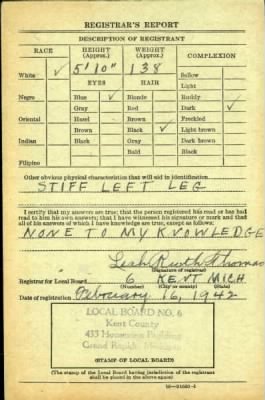 REGISTRAR'S REPORT
DESCRIPTION OF REGISTRANT
RACE HEIGHT (Approx.) WEIGHT (Approx.) COMPLEXION
White ✓ 5' 10" 138 Sallow
EYES HAIR Light
Negro Blue ✓ Blonde Ruddy
Gray Red Dark ✓
Oriental Hazel Brown Freckled
Brown Black ✓ Light brown
Indian Black Gray Dark brown
Bald Black
Filipino
Other obvious physical characteristics that will aid in identification
STIFF LEFT LEG
I certify that my answers are true; that the person registered has read or has had
read to him his own answers; that I have witnessed his signature or mark and that
all of his answers of which I have knowledge are true, except as follows:
NONE TO MY KNOWLEDGE
Leah Ruth Thomas
(Signature of registrar)
Registrar for Local Board 6 KENT MICH
(Number) (City or county) (State)
Date of registration February 16, 1942
LOCAL BOARD NO. 6
Kent County
433 Building
Grand Rapids, Michigan
(STAMP OF LOCAL BOARD)
(The stamp of the Local Board having jurisdiction of the registrant
shall be placed in the above space)